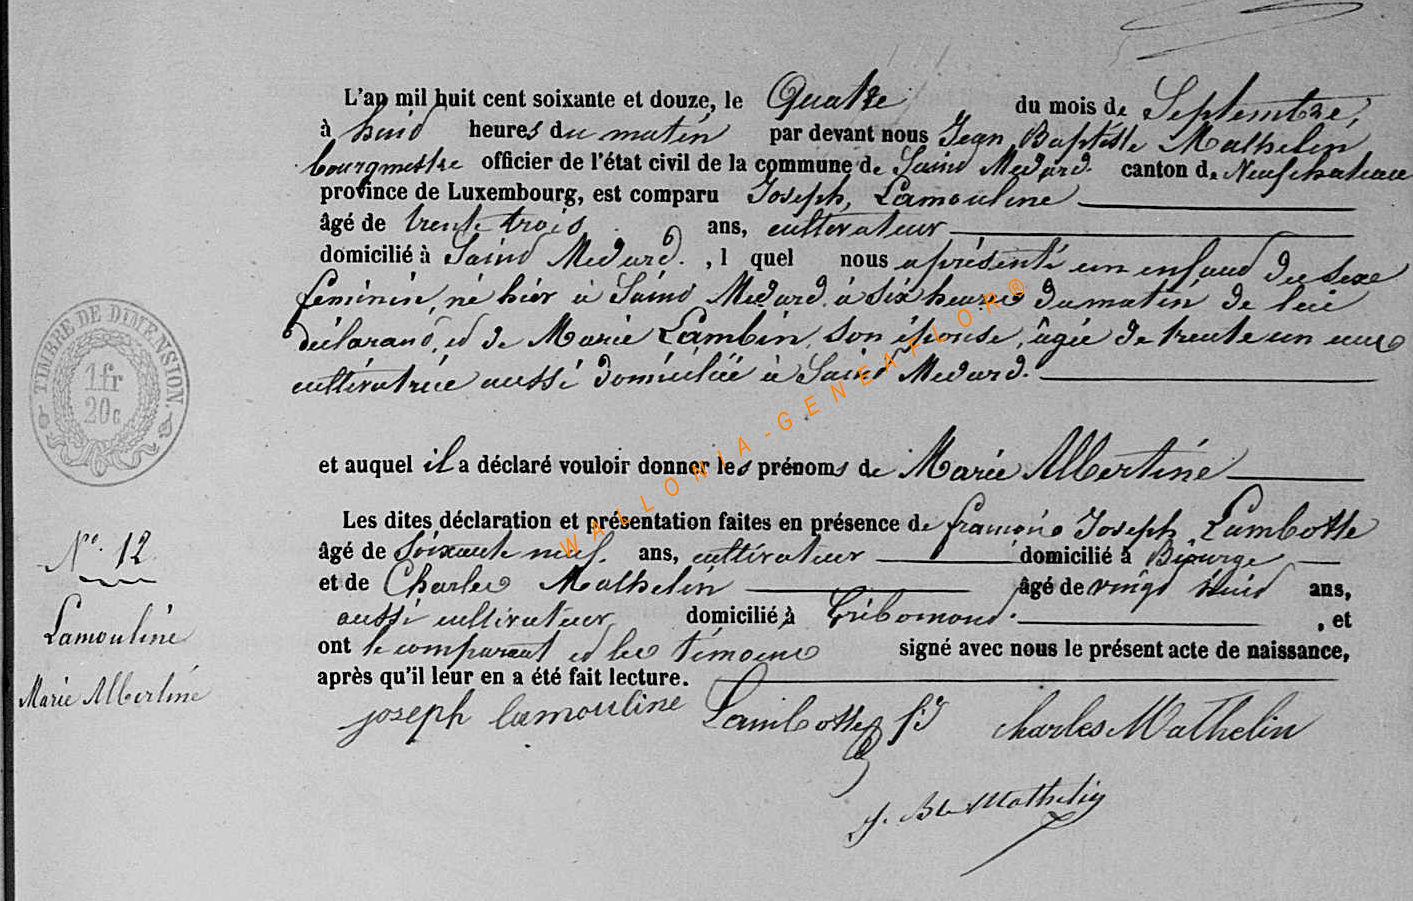 L'an mil huit cent soixante et douze, le Quatre du mois de Septembre,
à huid heures du matin par devant nous Jean Baptiste Mathelin
bourgmestre officier de l'état civil de la commune de Saind Medard. canton de Neufchateau
province de Luxembourg, est comparu Joseph, Lamouline
âgé de trente trois ans, cultivateur
domicilié à Saind Medard. , l quel nous a présenté un enfand du sexe
feminin, né hier à Saind Medard, à six heures du matin de lui
déclarand, et de Marie Lambin, son épouse, âgée de trente un ans
cultivatrice aussi domiciliée à Saind Medard.
et auquel il a déclaré vouloir donner les prénoms de Marie Albertine
Les dites déclaration et présentation faites en présence de François Joseph Lambotte
âgé de soixante neuf ans, cultivateur domicilié à Biourge
et de Charles Mathelin âgé de vingt huid ans,
aussi cultivateur, domicilié à Gribomond. , et
ont le comparant et les témoins signé avec nous le présent acte de naissance,
après qu'il leur en a été fait lecture.
joseph lamouline Lambotte fs charles Mathelin
J. Bte Mathelin
TIMBRE DE DIMENSION.
1 fr
20c
N° 12
Lamouline
Marie Albertine
WALLONIA-GENEAFLOR®